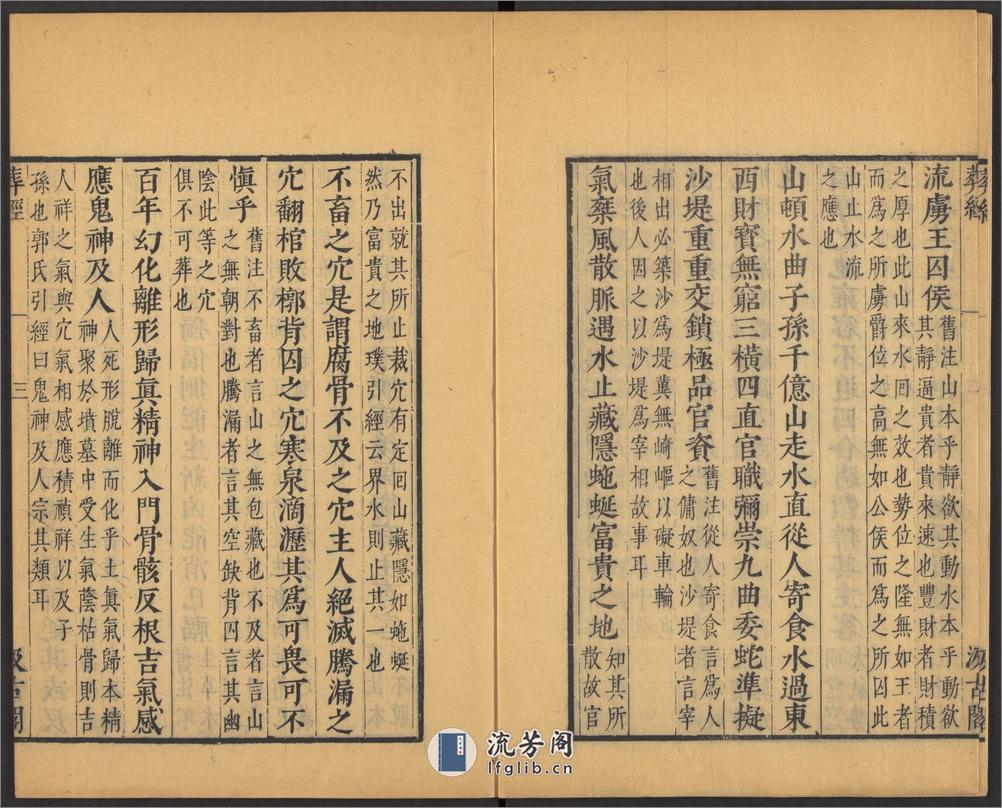 葬經
一
二
汲古閣
流虜王囚侯
舊注山本乎靜欲其動水本乎動欲
其靜逼貴者貴來速也豐財者財積
之厚也此山來水回之效也勢位之隆無如王者
而爲之所虜爵位之高無如公侯而爲之所囚此
山止水流
之應也
山頓水曲子孫千億山走水直從人寄食水過東
西財寶無窮三橫四直官職彌崇九曲委蛇準擬
沙堤重重交鎖極品官資
舊注從人寄食言爲人
之傭奴也沙堤者言宰
相出必築沙爲堤冀無崎嶇以礙車輪
也後人因之以沙堤爲宰相故事耳
氣乘風散脈遇水止藏隱蜿蜒富貴之地
知其所
散故官
不出就其所止裁穴有定回山藏隱如蜿蜒
然乃富貴之地璞引經云界水則止其一也
不畜之穴是謂腐骨不及之穴主人絕滅騰漏之
穴翻棺敗槨背囚之穴寒泉滴瀝其爲可畏可不
慎乎
舊注不畜者言山之無包藏也不及者言山
之無朝對也騰漏者言其空缺背囚言其幽
陰此等之穴
俱不可葬也
百年幻化離形歸眞精神入門骨骸反根吉氣感
應鬼神及人
人死形脫離而化乎土眞氣歸本精
神聚於墳墓中受生氣蔭枯骨則吉
人祥之氣與穴氣相感應積禎祥以及子
孫也郭氏引經曰鬼神及人宗其類耳
葬經
一
三
汲古閣
流芳阁
lfglib.cn